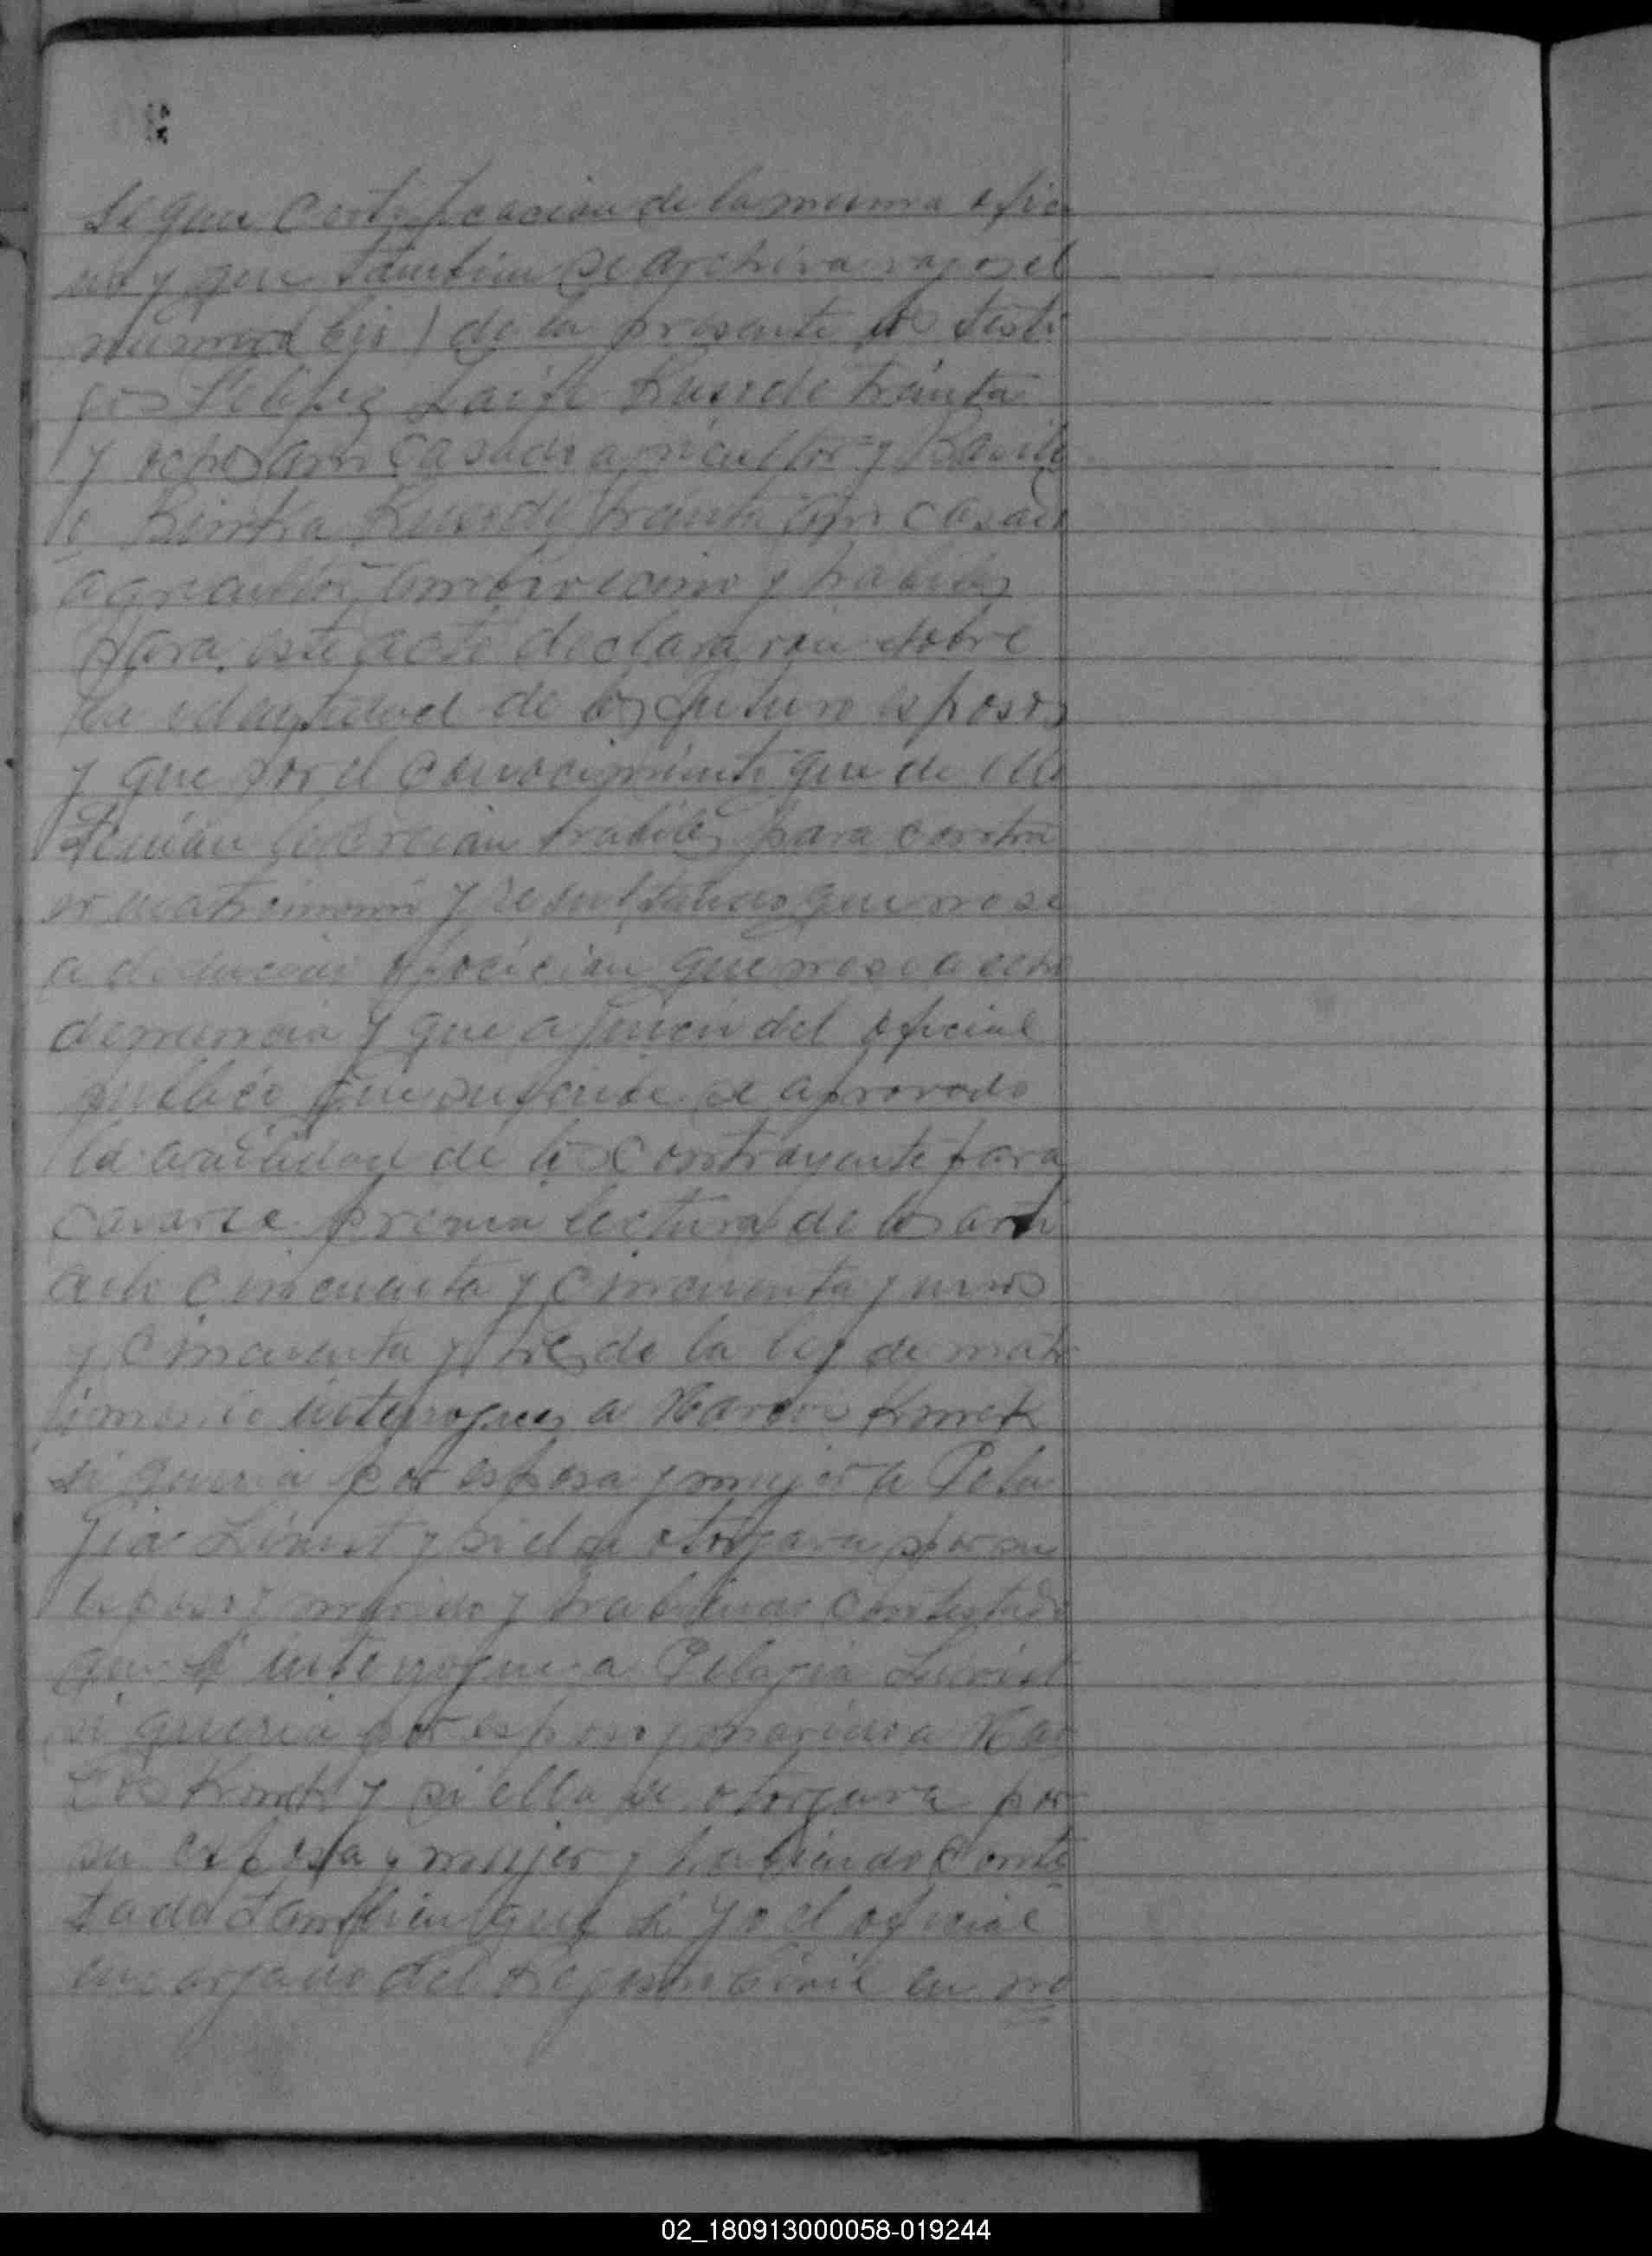 Segun Certificacion de la misma ofici
na y que tambien se archiva vajo el
numero bis) de la presente los testi
gos Felipez Ruso de trainta
y ocho ani casado agricultor y Bacile
Ruso de trainta ani casado
agricultor ambo vecino y habiles
para este acto declararon sobre
la edantidad de los futuro esposos
y que por el conocimiento que de ello
tenian los creian habiles para contra
er matrimonio y resultando que no se
a deducion oposicion que no se a echo
denuncia y que a juicio del oficial
publico que suscribe se a provado
la avilidad de los contrayente para
casarse previa lectura de los arti
culo cincuenta y cincuenta y uno
y cincuenta y tres de la ley de matri
imonio interrogue a Marcos Kmet
si queria por esposa y mujer a Pela
gia y si el se otorgava por su
esposo y marido y habiendo contestado
que si interrogue a Pelagia
si queria por esposo y marido a Mar
cos Kmet y si ella se otorgava por
su esposa y mujer y habiendo contes
tado tambien que si yo el oficial
encargado del Registro Civil en no
02_180913000058-019244